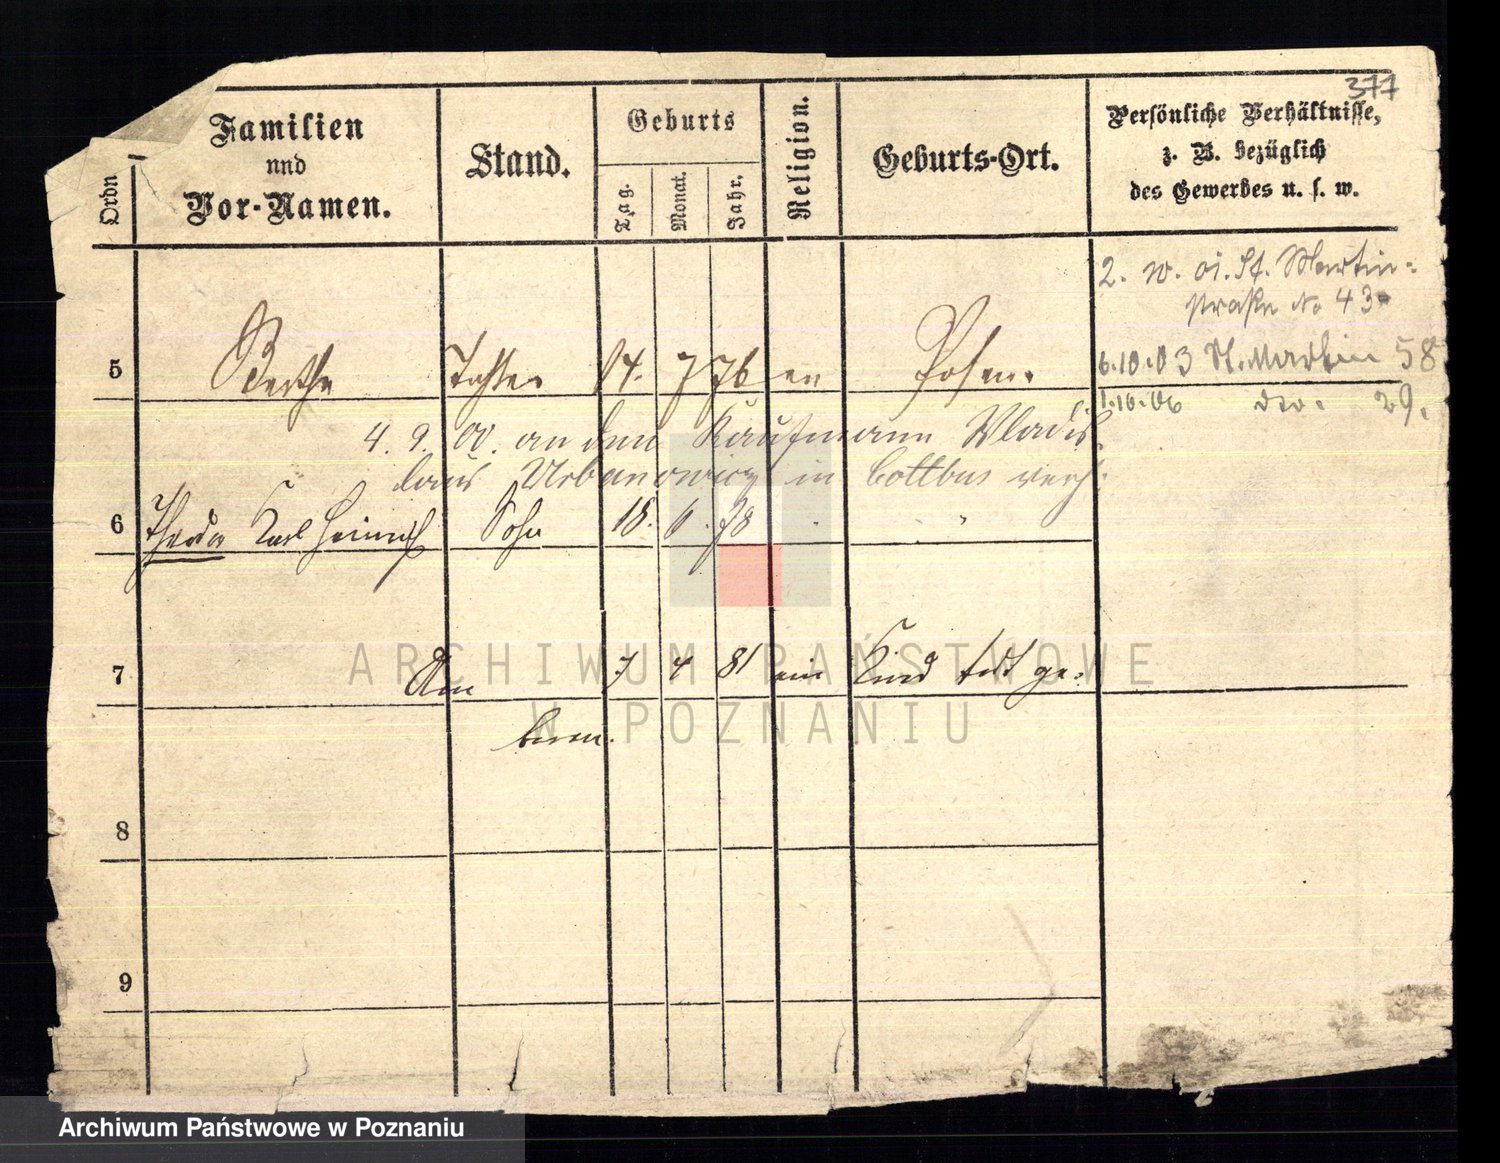 377
Ordn
Familien
und
Vor-Namen.
Stand.
Geburts
Tag.
Monat.
Jahr.
Religion.
Geburts-Ort.
Persönliche Verhältnisse,
z. B. bezüglich
des Gewerbes u. s. w.
St. Martin=
straße No 43
5 Bertha Tochter 7 76 ev Posen.
6.10.03 St. Martin 58
1.10.06 do. 29.
4. 9. 00. an den Kaufmann Wladis=
laus Urbanowicz in Cottbus verh.
6 Karl Heinrich Sohn 18. 6. 78 " "
7 Am 7 4 81 ein Kind tot ge=
boren.
8
9
ARCHIWUM PAŃSTWOWE
W POZNANIU
Archiwum Państwowe w Poznaniu